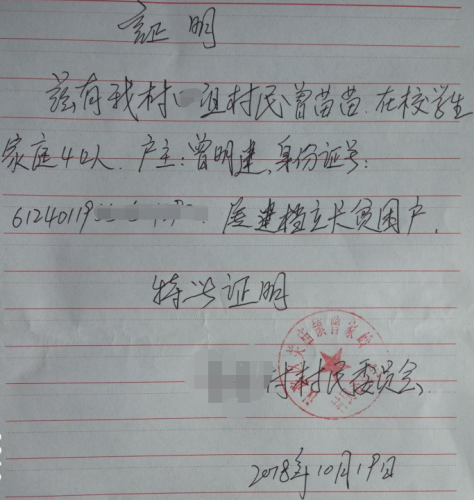 证明
兹有我村 组村民曾苗苗.在校学生
家庭4口人.户主:曾明建,身份证号:
61240119 属建档立卡贫困户.
特此证明
关店镇曾家
村村民委员会
2018年10月19日